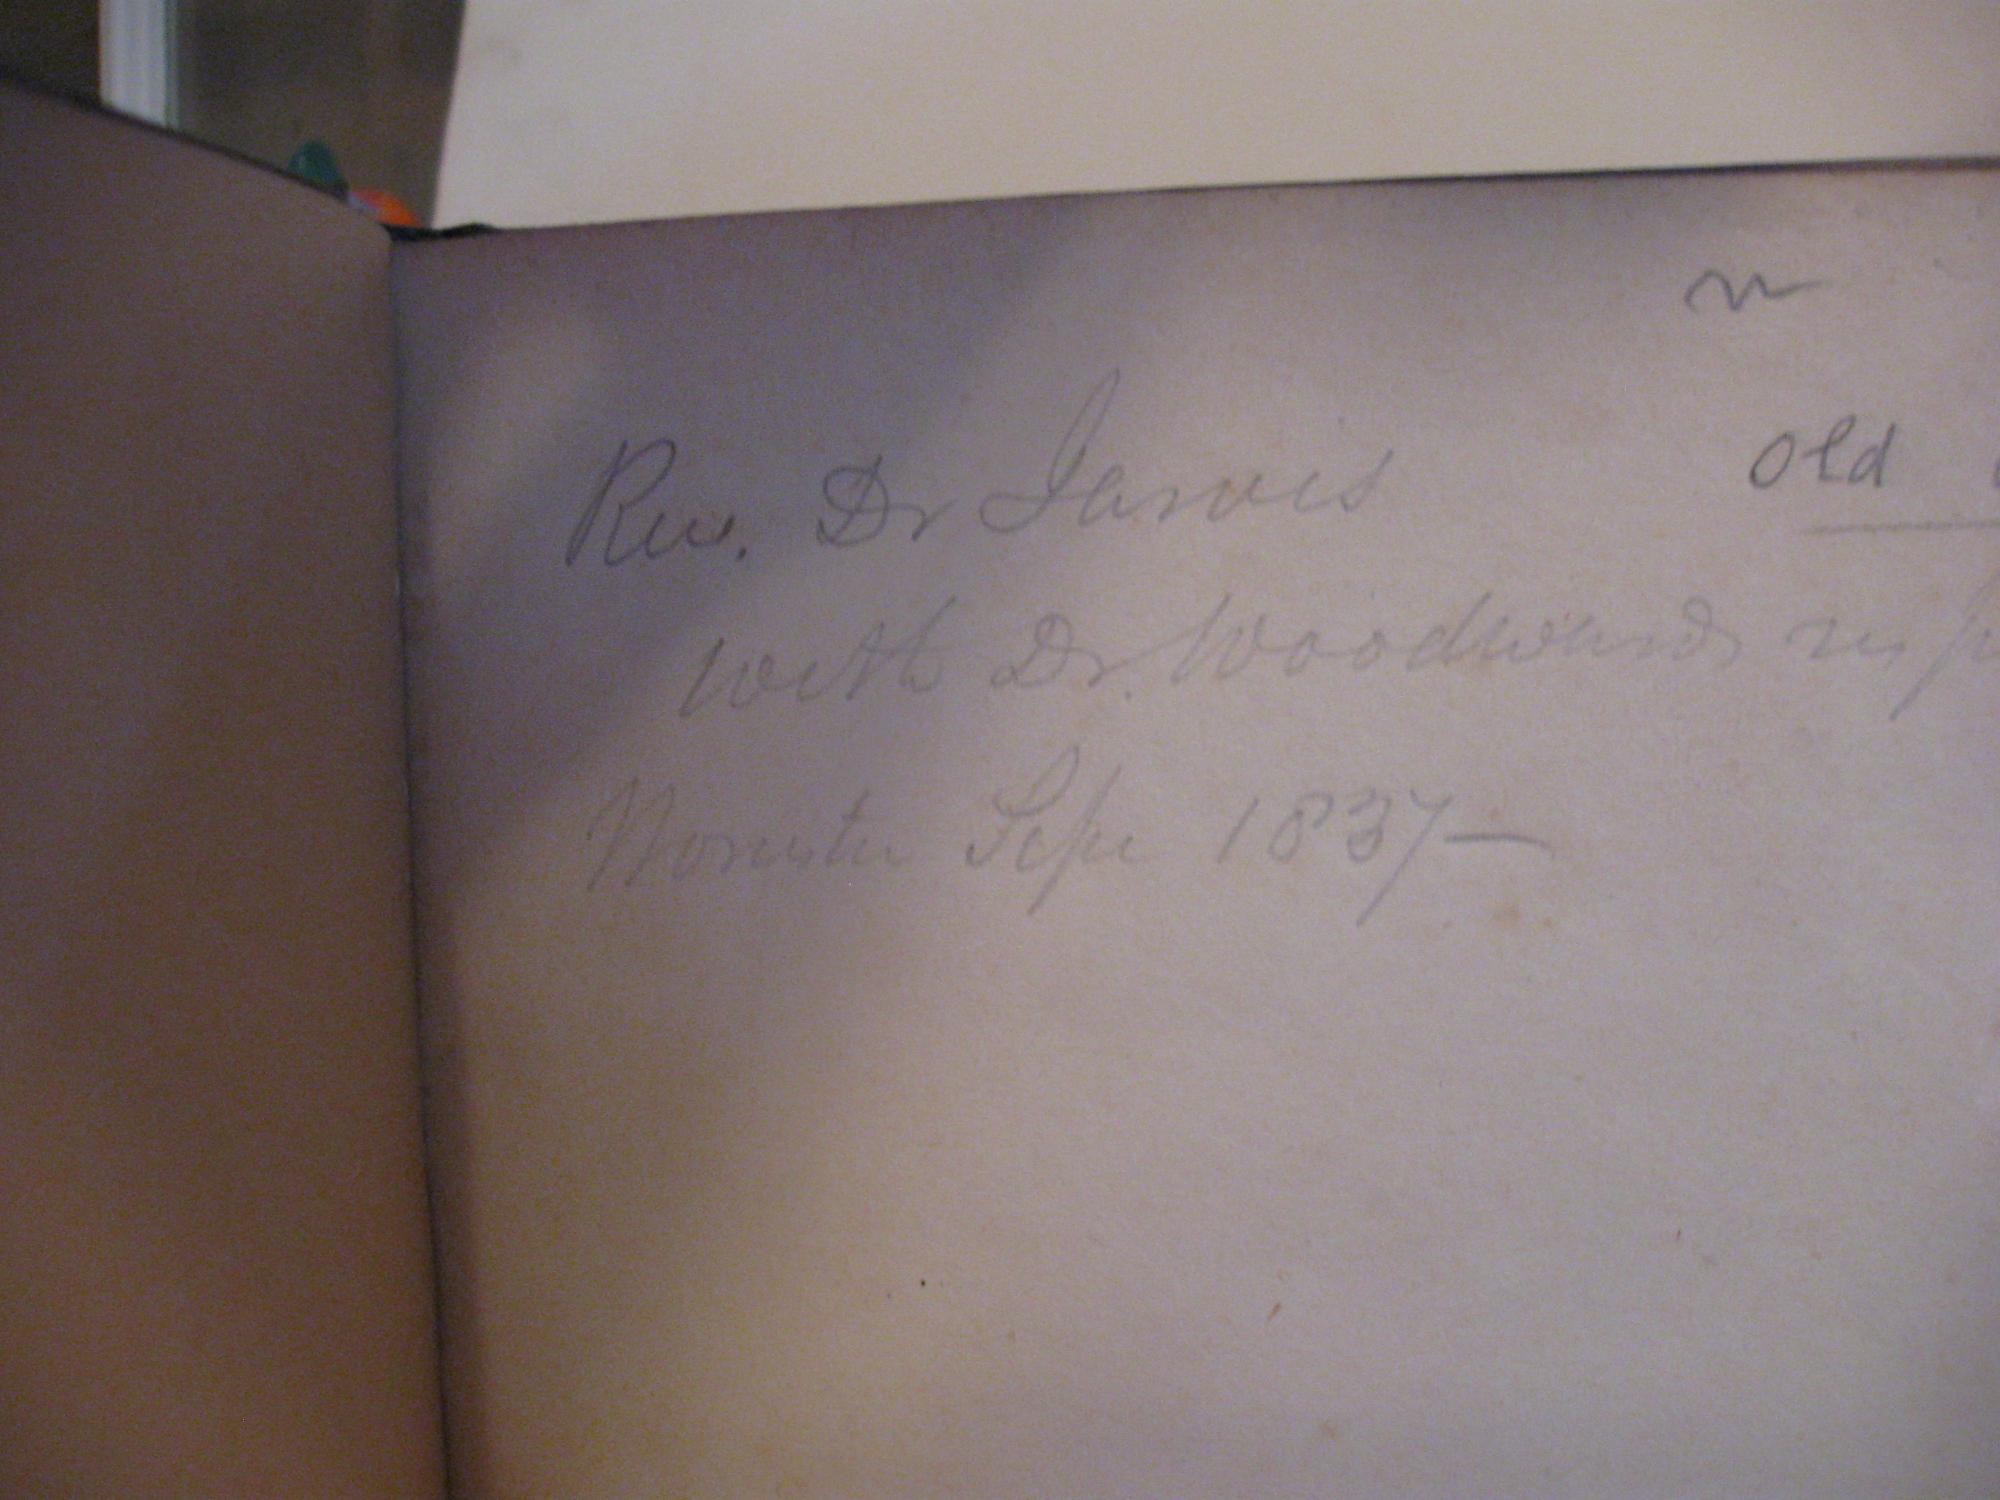 old
Rev. Dr Jarvis
with Dr. Woodwards resp
Worcester Sept 1837—